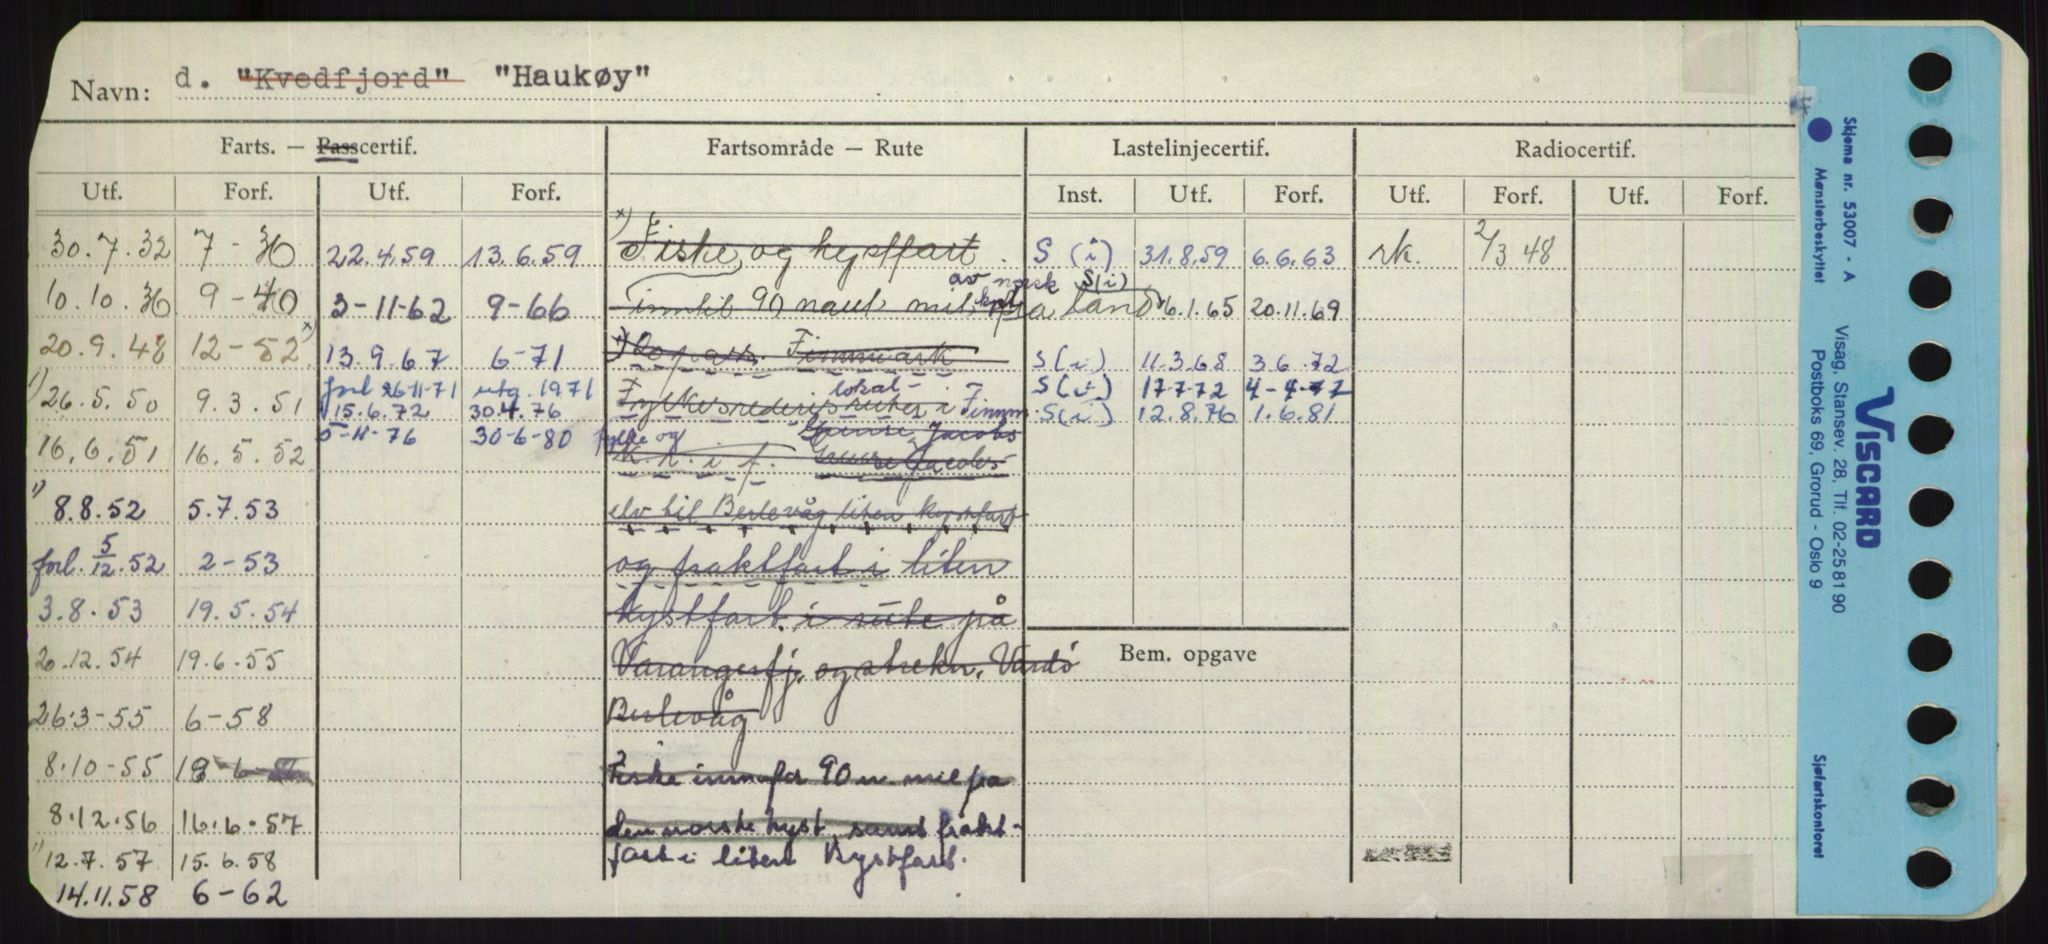 Navn: d. "Kvedfjord" "Haukøy"
Farts. — Passcertif. Fartsområde — Rute Lastelinjecertif. Radiocertif.
Utf. Forf. Utf. Forf. Inst. Utf. Forf. Utf. Forf. Utf. Forf.
30.7.32 7-36 22.4.59 13.6.59 x) Fiske, og kystfart S (i) 31.8.59 6.6.63 rk. 2/3 48
av norsk S(i)
10.10.36 9-40 3-11-62 9-66 inntil 90 naut. mil kyst fra land 6.1.65 20.11.69
20.9.48 12-52 x) 13.9.67 6-71 Finnmark S(i) 11.3.68 3.6.72
forl 26-11-71 utg. 1971 lokal- S(i) 17.7.72 4-4-77
1) 26.5.50 9.3.51 15.6.72 30.4.76 Fylkesrederis ruter i Finnm. S(i) 12.8.76 1.6.81
5-11-76 30-6-80 fylke og Grense Jacobs
16.6.51 16.5.52 K.k. i f. Grense Jacobs-
1) 8.8.52 5.7.53 elv til Berlevåg liten kystfart
forl. 5/12.52 2-53 og fraktfart i liten
3.8.53 19.5.54 kystfart. i rute på
20.12.54 19.6.55 Varangerfj. og strekn. Vardö
Bem. opgave
26.3-55 6-58 Berlevåg
8.10-55 18-6- Fiske innenfor 90 n. mil fra
8.12.56 16.6.57 den norske kyst, samt frakt-
1) 12.7.57 15.6.58 fart i liten Kystfart.
14.11.58 6-62
Skjema nr. 53007 - A
Mønsterbeskyttet
VISCARD
Visag, Stansev. 28, Tlf. 02-25 81 90
Postboks 69, Grorud - Oslo 9
Sjøfartskontoret